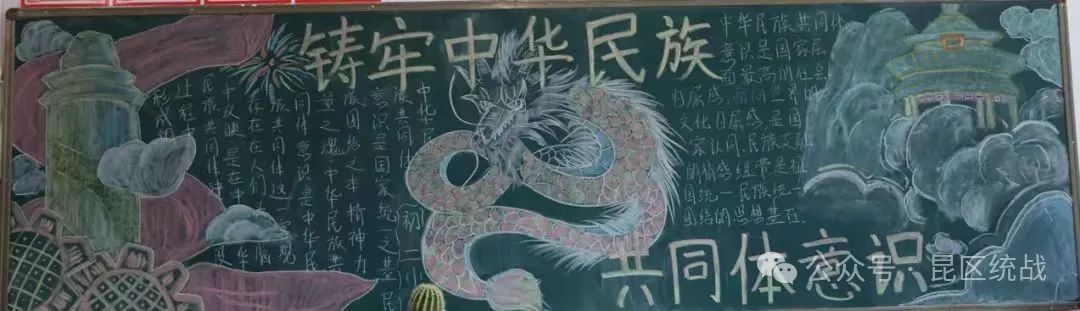 铸牢中华民族
共同体意识
中华民
族共同体
意识是国家统一之基、民
族团结之本、精神力
量之魂。中华民族共
同体意识是中华民
族共同体这一客观
存在在人们头脑
中反映,是在中华
民族共同体
过程中
形成的
初二
中华民族共同体
意识是国家层
面最高的社会
归属感、面向世界的
文化归属感,是国
家认同、民族交融
的情感纽带,是祖
国统一、民族统一
团结的思想基石.
公众号·昆区统战